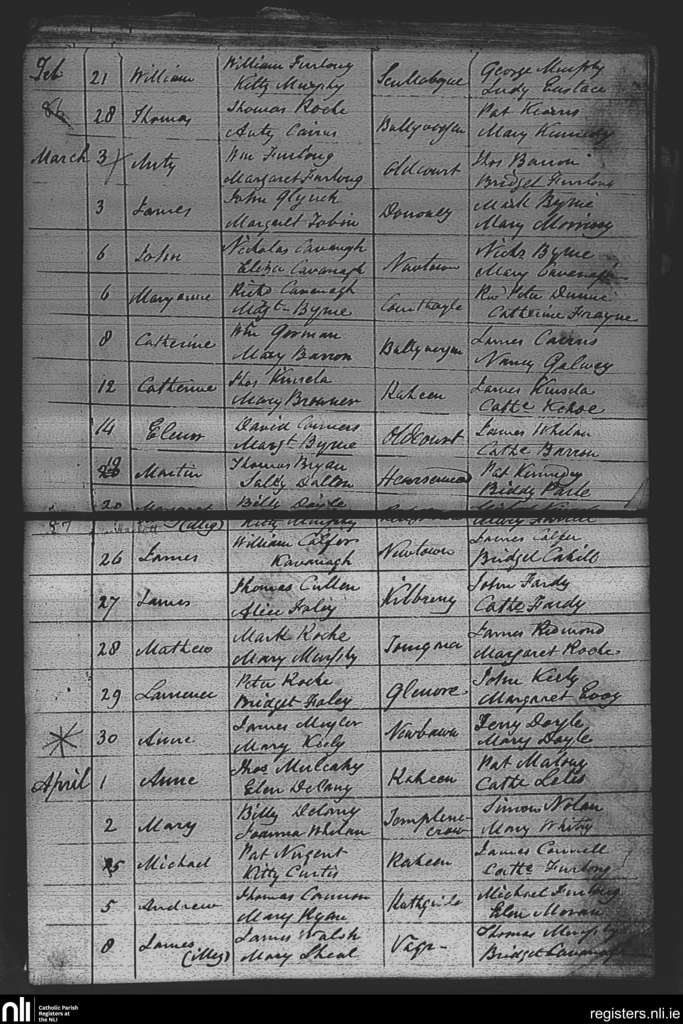 Feb 21 William William Furlong Scullabogue George Murphy
Kitty Murphy Judy Eustace
28 Thomas Thomas Roche Ballyvergan Pat Kearns
Anty Cairns Mary Kennedy
March 3 Anty Wm Furlong Oldcourt Thos Barron
Margaret Furlong Bridget Furlong
3 James John Glynch Donooney Mark Byrne
Margaret Tobin Mary Morrissy
6 John Nicholas Cavanagh Newtown Nichs Byrne
Eliza Cavanagh Mary Cavanagh
6 Maryanne Richd Cavanagh Courthoyle Revd Peter Dunne
Mdgt Byrne Catherine Frayne
8 Catherine Wm Gorman Ballyvergan James Cairns
Mary Barron Nancy Galwey
12 Catherine Thos Kinsela Raheen James Kinsela
Mary Browner Cathe Kehoe
14 Elenor David Conners Oldcourt James Whelan
Margt Byrne Cathe Barron
19 Martin Thomas Bryan Pat Kennedy
Sally Dalton Biddy Parle
20 Margaret Billy Doyle
(illeg) Kitty Murphy
26 James William Calfer Newtown James Calfer
Kavanagh Bridget Cahill
27 James Thomas Cullen Kilbreny John Fardy
Alice Foley Cathe Fardy
28 Mathew Mark Roche Tomgrna James Redmond
Mary Murphy Margaret Roche
29 Laurence Peter Roche Glenore John Kiely
Bridget Foley Margaret
30 Anne James Mugler Newbawn Terry Doyle
Mary Kiely Mary Doyle
April 1 Anne Thos Mulcahy Raheen Pat Malony
Elen Delany Cathe
2 Mary Billy Delany Templene- Simon Nolan
Joanna Whelan crow Mary Whitty
5 Michael Pat Nugent Raheen James Connell
Kitty Curtis Cathe Furlong
5 Andrew Thomas Connors Michael Furlong
Mary Ryan Elen Moran
8 James James Walsh Vagr- Thomas Murphy
(illeg) Mary Sheal Bridget Cavanagh
nli Catholic Parish
Registers at
the NLI
registers.nli.ie